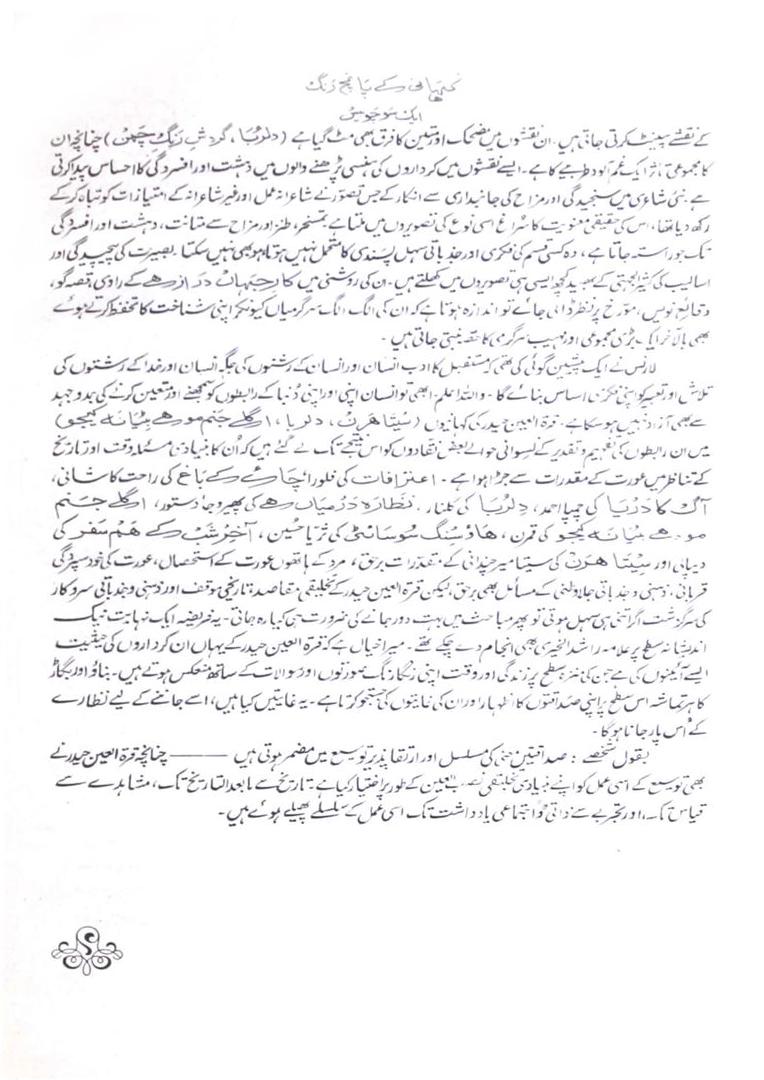 کہانی کے پانچ رنگ
ایک سو چوبیس
کے نقشے پینٹ کرتی جاتی ہیں۔ ان نقشوں میں مضحک اور متین کا فرق بھی مٹ گیا ہے (دلربا، گردشِ رنگِ چمن) چنانچہ ان
کا مجموعی تاثر ایک غم آلود طربیے کا ہے۔ ایسے نقشوں میں کرداروں کی ہنسی پڑھنے والوں میں دہشت اور افسردگی کا احساس پیدا کرتی
ہے۔ نئی شاعری میں سنجیدگی اور مزاح کی جانبداری سے انکار کے جس تصوّر نے شاعرانہ عمل اور غیر شاعرانہ کے امتیازات کو تباہ کر کے
رکھ دیا تھا، اس کی حقیقی معنویت کا سُراغ اسی نوع کی تصویروں میں ملتا ہے۔ تمسخر، طنز اور مزاح سے متانت، دہشت اور افسردگی
تک جو راستہ جاتا ہے، وہ کسی قسم کی فکری اور جذباتی سہل پسندی کا متحمل نہیں ہوتا، ہو بھی نہیں سکتا۔ بصیرت کی پیچیدگی اور
اسالیب کی کثیر الجہتی کے بھید کچھ ایسی ہی تصویروں میں کھلتے ہیں۔ ان کی روشنی میں کارِ جہاں دراز ہے کے راوی، قصہ گو،
وقائع نویس، مؤرخ پر نظر ڈالی جائے تو اندازہ ہوتا ہے کہ ان کی الگ الگ سرگرمیاں کیونکر اپنی شناخت کا تحفظ کرتے ہوئے
بھی بالآخر ایک بڑی مجموعی اور مہیب سرگرمی کا حصّہ بنتی جاتی ہیں۔
لارنس نے ایک پیشین گوئی کی تھی کہ مستقبل کا ادب انسان اور انسان کے رشتوں کی جگہ انسان اور خدا کے رشتوں کی
تلاش اور تعبیر کو اپنی فکری اساس بنائے گا۔ واللہ اعلم۔ ابھی تو انسان اپنی اور اپنی دُنیا کے رابطوں کو سمجھنے اور متعین کرنے کی جدوجہد
سے بھی آزاد نہیں ہو سکا ہے۔ قرۃ العین حیدر کی کہانیوں (سیتا ہرن، دلربا، اگلے جنم موہے بٹیا نہ کیجو)
میں ان رابطوں کی تفہیم و تقدیر کے نسوانی حوالے بعض نقادوں کو اس نتیجے تک لے گئے ہیں کہ اُن کا بنیادی مسئلہ وقت اور تاریخ
کے تناظر میں عورت کے مقدرات سے جڑا ہوا ہے۔ اعترافات کی فلورا، چائے کے باغ کی راحت کاشانی،
آگ کا دریا کی چمپا احمد، دِلرُبا کی گلنار، نظارہ درمیاں ہے کی پھیروجا دستور، اگلے جنم
موہے بٹیا نہ کیجو کی قمرن، ہاؤسنگ سوسائٹی کی ثریا حسین، آخرِ شب کے ہم سفر کی
دیپالی اور سیتا ہرن کی سیتا میر چندانی کے مقدّرات برحق، مرد کے ہاتھوں عورت کے استحصال، عورت کی خود سپردگی
قربانی، ذہنی و جذباتی جلاوطنی کے مسائل بھی برحق، لیکن قرۃ العین حیدر کے تخلیقی مقاصد، تاریخی موقف اور ذہنی و جذباتی سروکار
کی سرگزشت اگر اتنی ہی سہل ہوتی تو پھر مباحث میں بہت دور جانے کی ضرورت ہی کیا رہ جاتی۔ یہ فریضہ ایک نہایت نیک
اندیشانہ سطح پر علامہ راشد الخیری بھی انجام دے چکے تھے۔ میرا خیال ہے کہ قرۃ العین حیدر کے یہاں ان کرداروں کی حیثیت
ایسے آئینوں کی ہے جن کی منزہ سطح پر زندگی اور وقت اپنی رنگا رنگ صورتوں اور سوالات کے ساتھ منعکس ہوتے ہیں۔ بناؤ اور بگاڑ
کا ہر تماشہ اس سطح پر اپنی صداقتوں کا اظہار اور ان کی غایتوں کی جستجو کرتا ہے۔ یہ غایتیں کیا ہیں، اسے جاننے کے لیے نظارے
کے اُس پار جانا ہوگا۔
بقول شخصے: صداقتیں معنی کی مسلسل اور ارتقا پذیر توسیع میں مضمر ہوتی ہیں ——— چنانچہ قرۃ العین حیدر نے
بھی توسیع کے اسی عمل کو اپنے بنیادی تخلیقی نصب العین کے طور پر اختیار کیا ہے۔ تاریخ سے مابعد التاریخ تک، مشاہدے سے
قیاس تک، اور تجربے سے ذاتی و اجتماعی یادداشت تک اسی عمل کے سلسلے پھیلے ہوئے ہیں۔